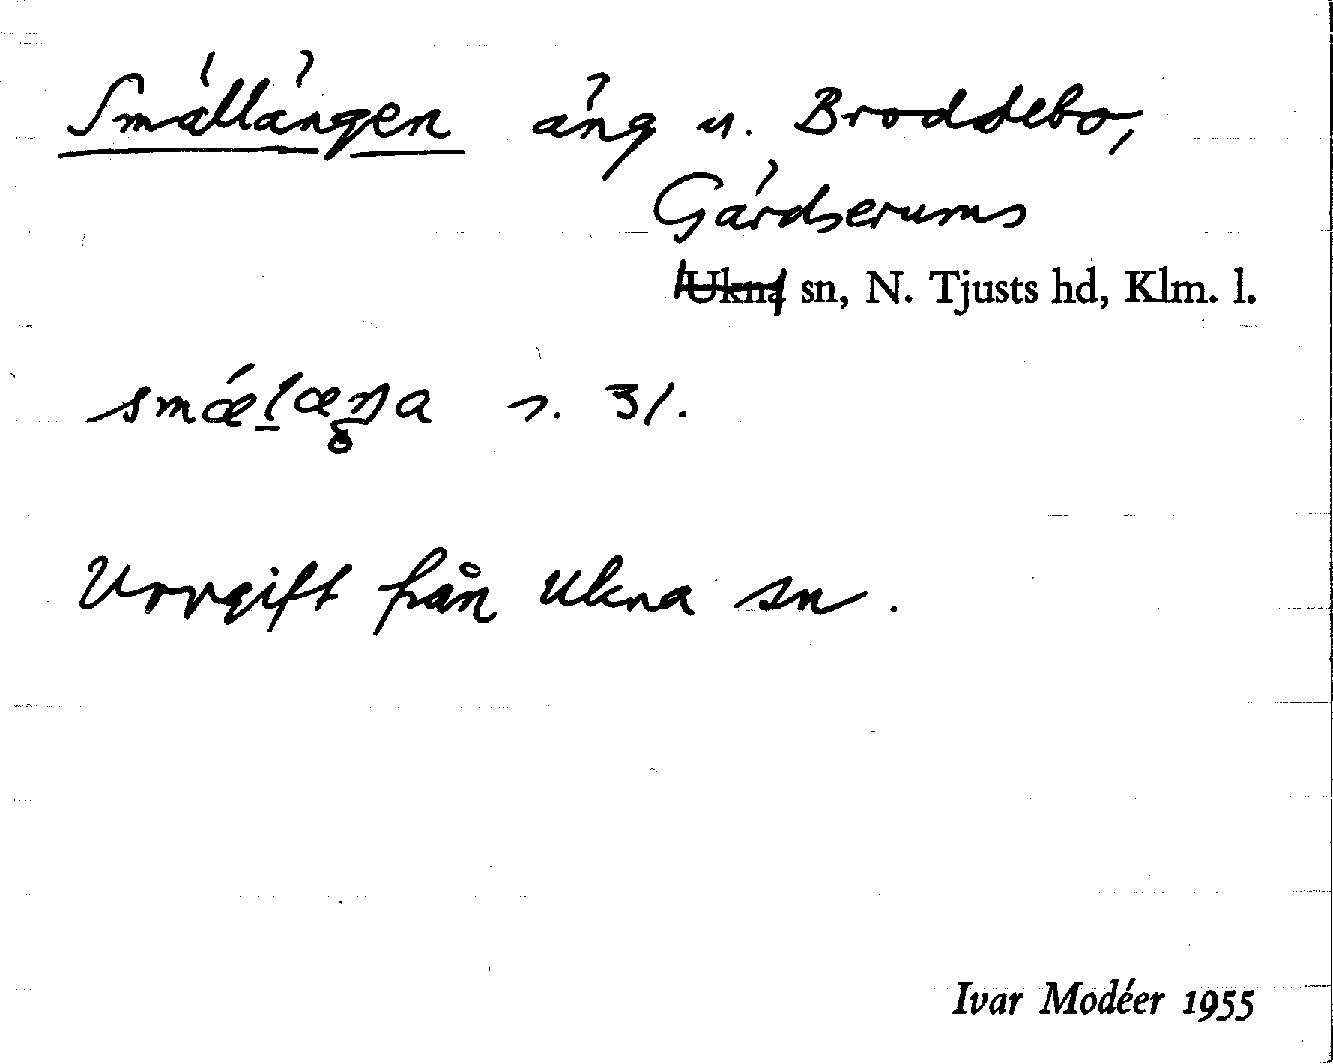 Smällängen äng u. Broddebo,
Gärdserums
Ukna sn, N. Tjusts hd, Klm. l.
smǽlæŋa s. 31.
Uppgift från Ukna sn.
Ivar Modéer 1955